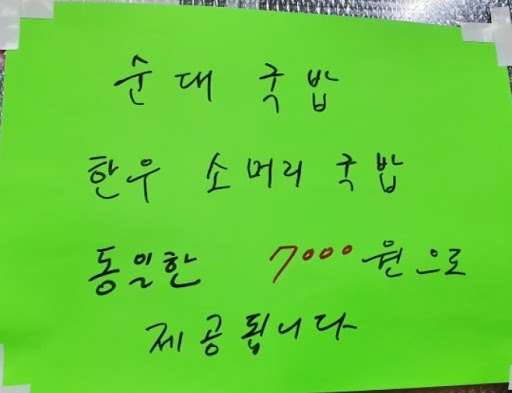 순대 국밥
한우 소머리 국밥
동일한 7000원으로
제공됩니다